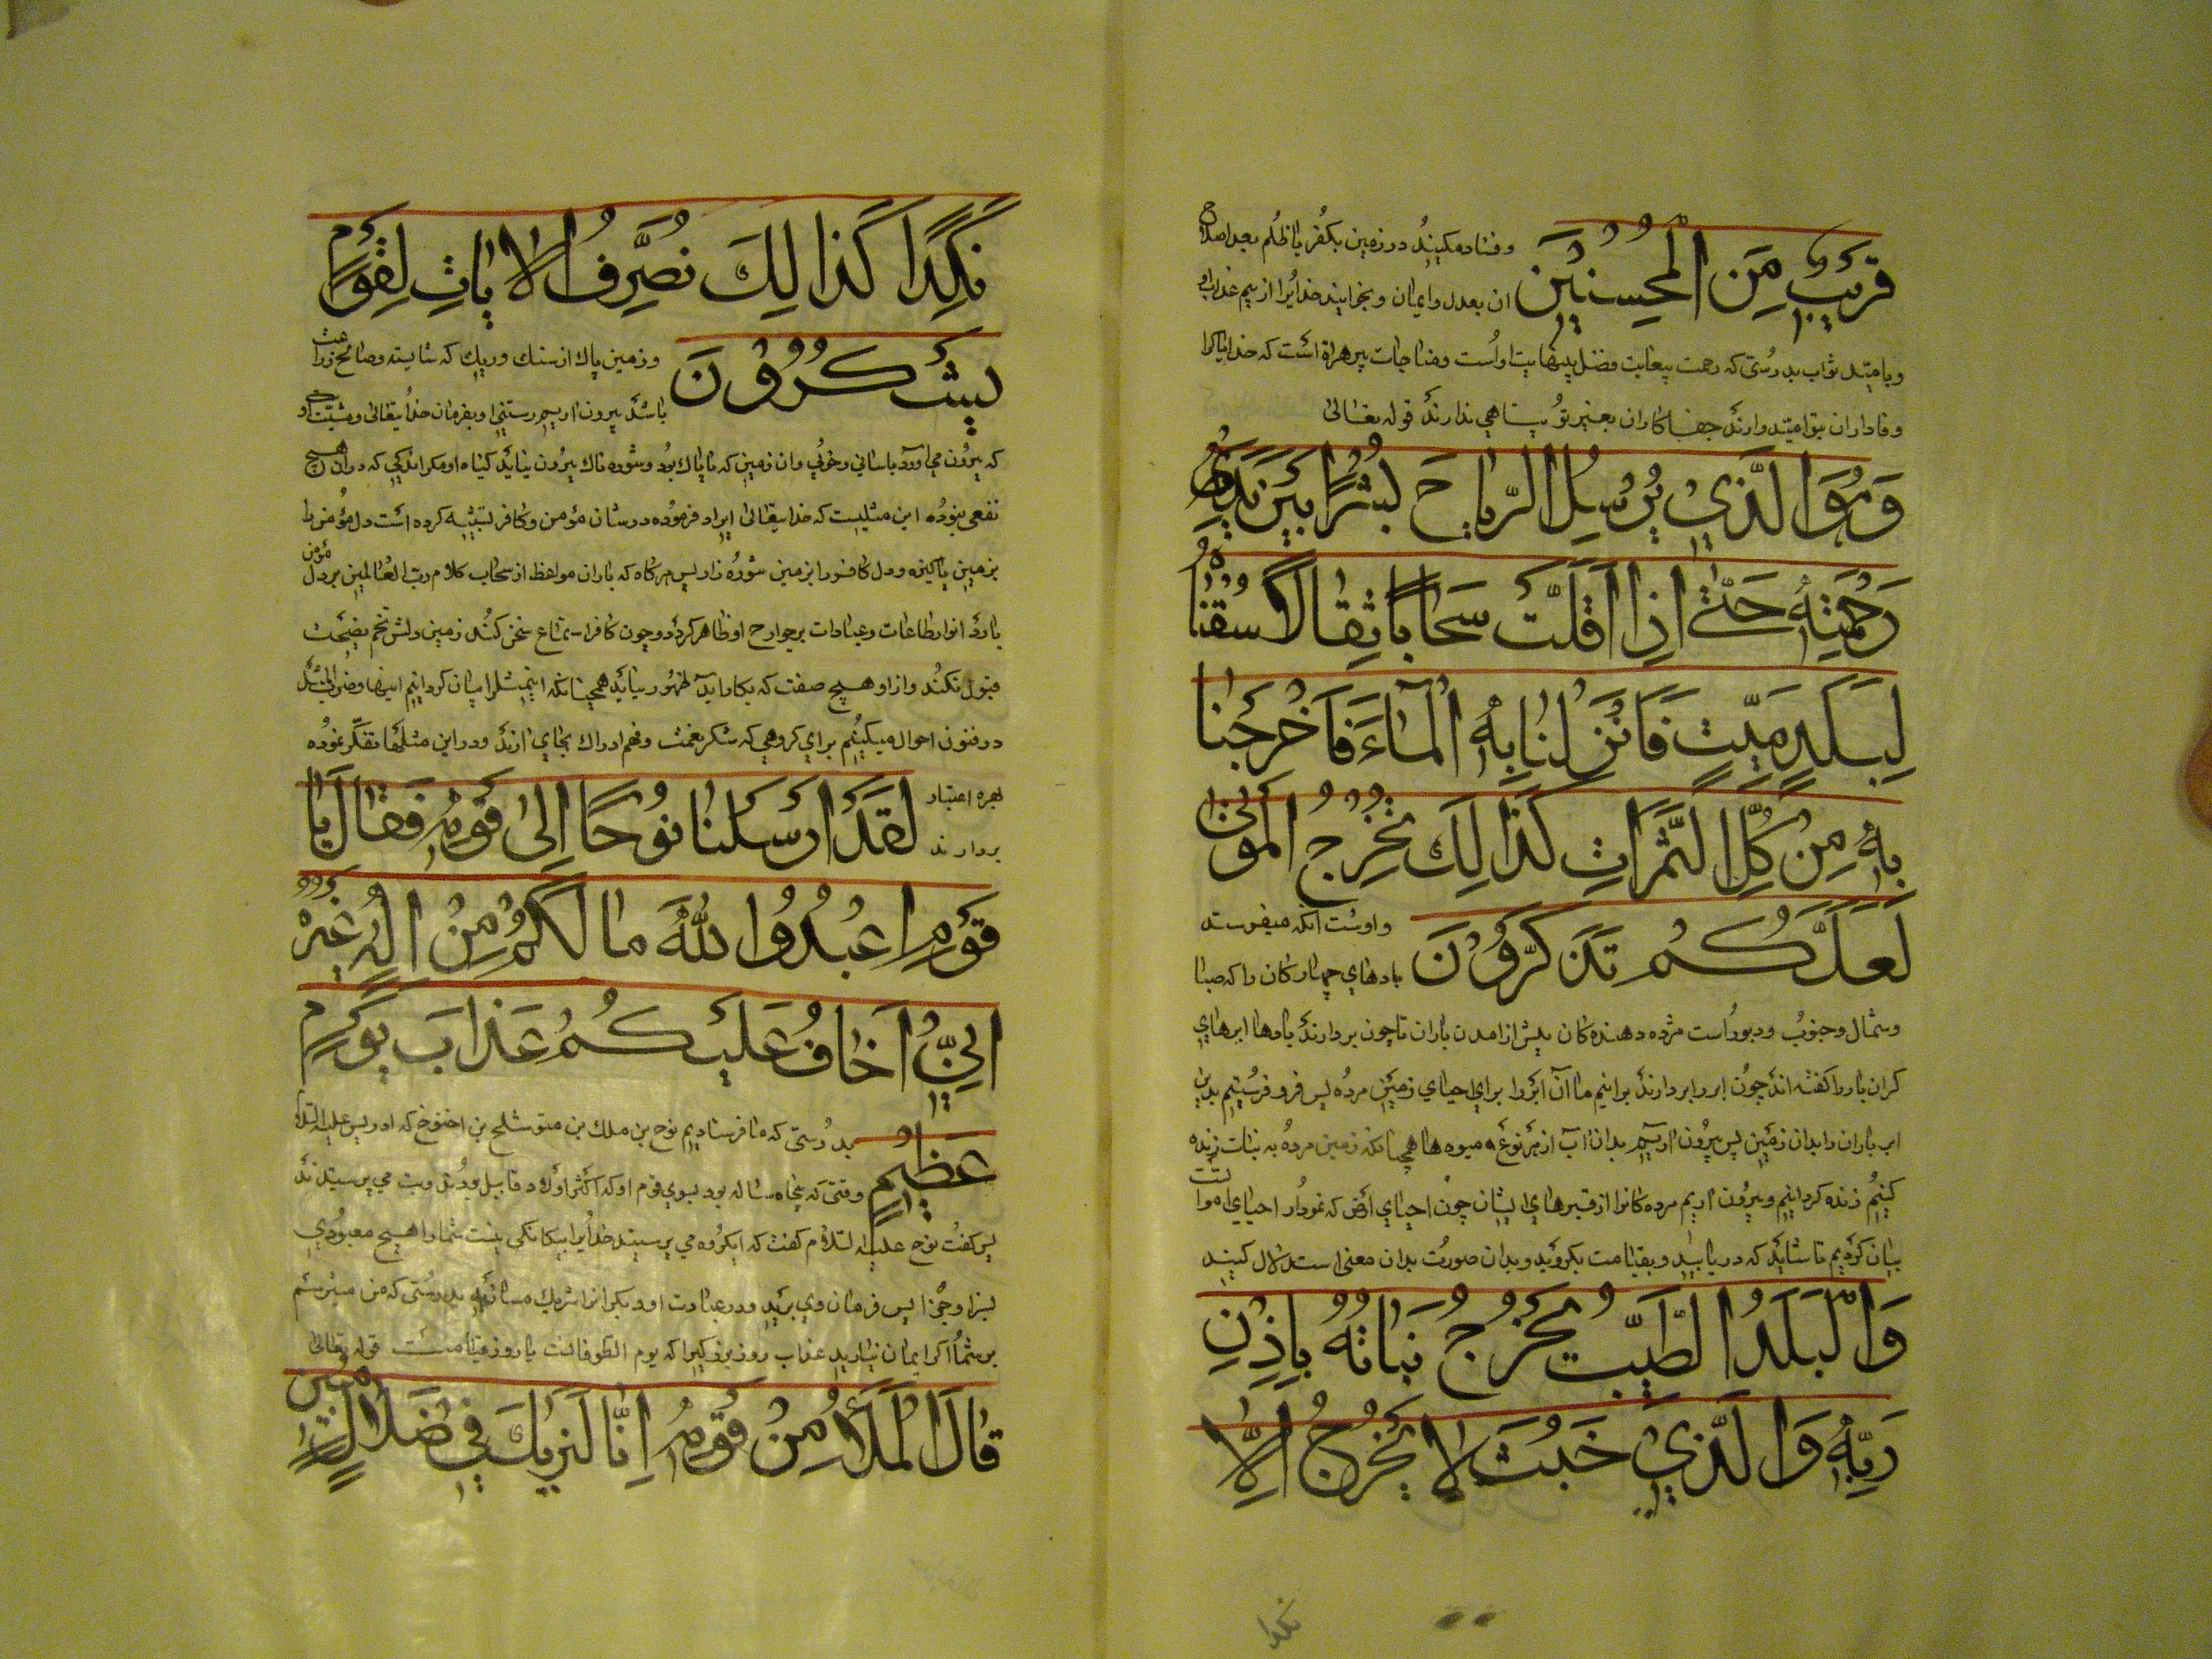 قَرِيبٌ مِنَ الْمُحْسِنِينَ
وفساد مكنيد در زمين بكفر يا ظلم بعد اصلاح
ان بعدل وايمان وبخوانيد خدايرا از بيم عذاب او
وباميد ثواب بدرستى كه رحمت بيغايت وفضل بينهايت اوست ومناجات پير هراة است كه خدايا كرا
وفاداران بتو اميد دارند جفا كاران بغير تو پناهي ندارند قوله تعالى
وَهُوَ الَّذِي يُرْسِلُ الرِّيَاحَ بُشْرًا بَيْنَ يَدَيْ
رَحْمَتِهِ حَتّٰى اِذَا اَقَلَّتْ سَحَابًا ثِقَالًا سُقْنَاهُ
لِبَلَدٍ مَيِّتٍ فَاَنْزَلْنَا بِهِ الْمَاءَ فَاَخْرَجْنَا
بِهِ مِنْ كُلِّ الثَّمَرَاتِ كَذٰلِكَ نُخْرِجُ الْمَوْتٰى
لَعَلَّكُمْ تَذَكَّرُوْنَ
واوست انكه ميفرسته
بادهاي چهار كان را كه صبا
وشمال وجنوب ودبور است مژده دهنده كان پيش از امدن باران تا چون بردارند بادها ابرهاي
كران بار را كفته اند چون ابر را بردارند برانيم ما آن ابر را براي احياي زمين مرده پس فرو فرستيم بدين
ابر باران را بدان زمين پس بيرون اريم بدان آب از هر نوع ميوه ها همچنانكه زمين مرده به نبات زنده
كنيم زنده كردانيم وبيرون اريم مرده كانرا از قبرهاي ايشان چون احياي ارض كه نمودار احياي اموات است
بيان كرديم تا شايد كه دريابيد وبقيامت بكرويد وبدان صورت بدان معنى استدلال كنيد
وَالْبَلَدُ الطَّيِّبُ يَخْرُجُ نَبَاتُهُ بِاِذْنِ
رَبِّهِ وَالَّذِي خَبُثَ لَا يَخْرُجُ اِلَّا
نكدا
نَكِدًا كَذَالِكَ نُصَرِّفُ الْاٰيَاتِ لِقَوْمٍ
يَشْكُرُوْنَ
وزمين پاك از سنك وريك كه شايسته وصالح زراعت
باشد بيرون اريم رستني او بفرمان خدايتعالى ومشيت او
كه بيرون مي اورد باساني وخوبي وان زمين كه ناپاك بود وشوره ناك بيرون نيايد كياه او مكر اندكي كه دران هيچ
نفعى نبوده اين مثليست كه خدايتعالى ايراد فرموده در شان مؤمن وكافر تشبيه كرده است دل مؤمنرا
بزمين پاكيزه ودل كافر را بزمين شوره زار پس هركاه كه باران مواعظ از سحاب كلام رب العالمين بر دل مؤمن
بارد انوار طاعات وعبادات بر جوارح او ظاهر كردد وچون كافر استماع سخن كند زمين دلش تخم نصيحت
قبول نكند واز او هيچ صفت كه بكار ايد بظهور نيايد همچنانكه اينمثلرا بيان كردانيم
در فنون احوال ميكنيم براي كروهي كه شكر نعمت وفهم ادراك بجاي ارند ودر اين مثلها تفكر نموده
بهره اعتبار
بردارند
لَقَدْ اَرْسَلْنَا نُوْحًا اِلٰى قَوْمِهِ فَقَالَ يَا
قَوْمِ اعْبُدُوا اللّٰهَ مَا لَكُمْ مِنْ اِلٰهٍ غَيْرُهُ
اِنِّيْ اَخَافُ عَلَيْكُمْ عَذَابَ يَوْمٍ
عَظِيْمٍ
بدرستى كه ما فرستاديم نوح بن ملك بن متوشلح بن اخنوخ كه ادريس عليه السلام
وقتى كه پنجاه ساله بود بسوي قوم او كه اكثر اولاد قابيل بودند وبت مي پرستيدند
پس كفت نوح عليه السلام كفت كه ايكروه مي پرستيد خدايرا بيكانكى نيست شما را هيچ معبودي
بسزا وجز او پس فرمان وي بريد ودر عبادت او ديكرانرا شريك مسازيد بدرستى كه من ميترسم
بر شما اكر ايمان نياريد عذاب روز بزركيرا كه يوم الطوفانست يا روز قيامت قوله تعالى
قَالَ الْمَلَأُ مِنْ قَوْمِهِ اِنَّا لَنَرٰيكَ فِي ضَلَالٍ مُبِيْنٍ